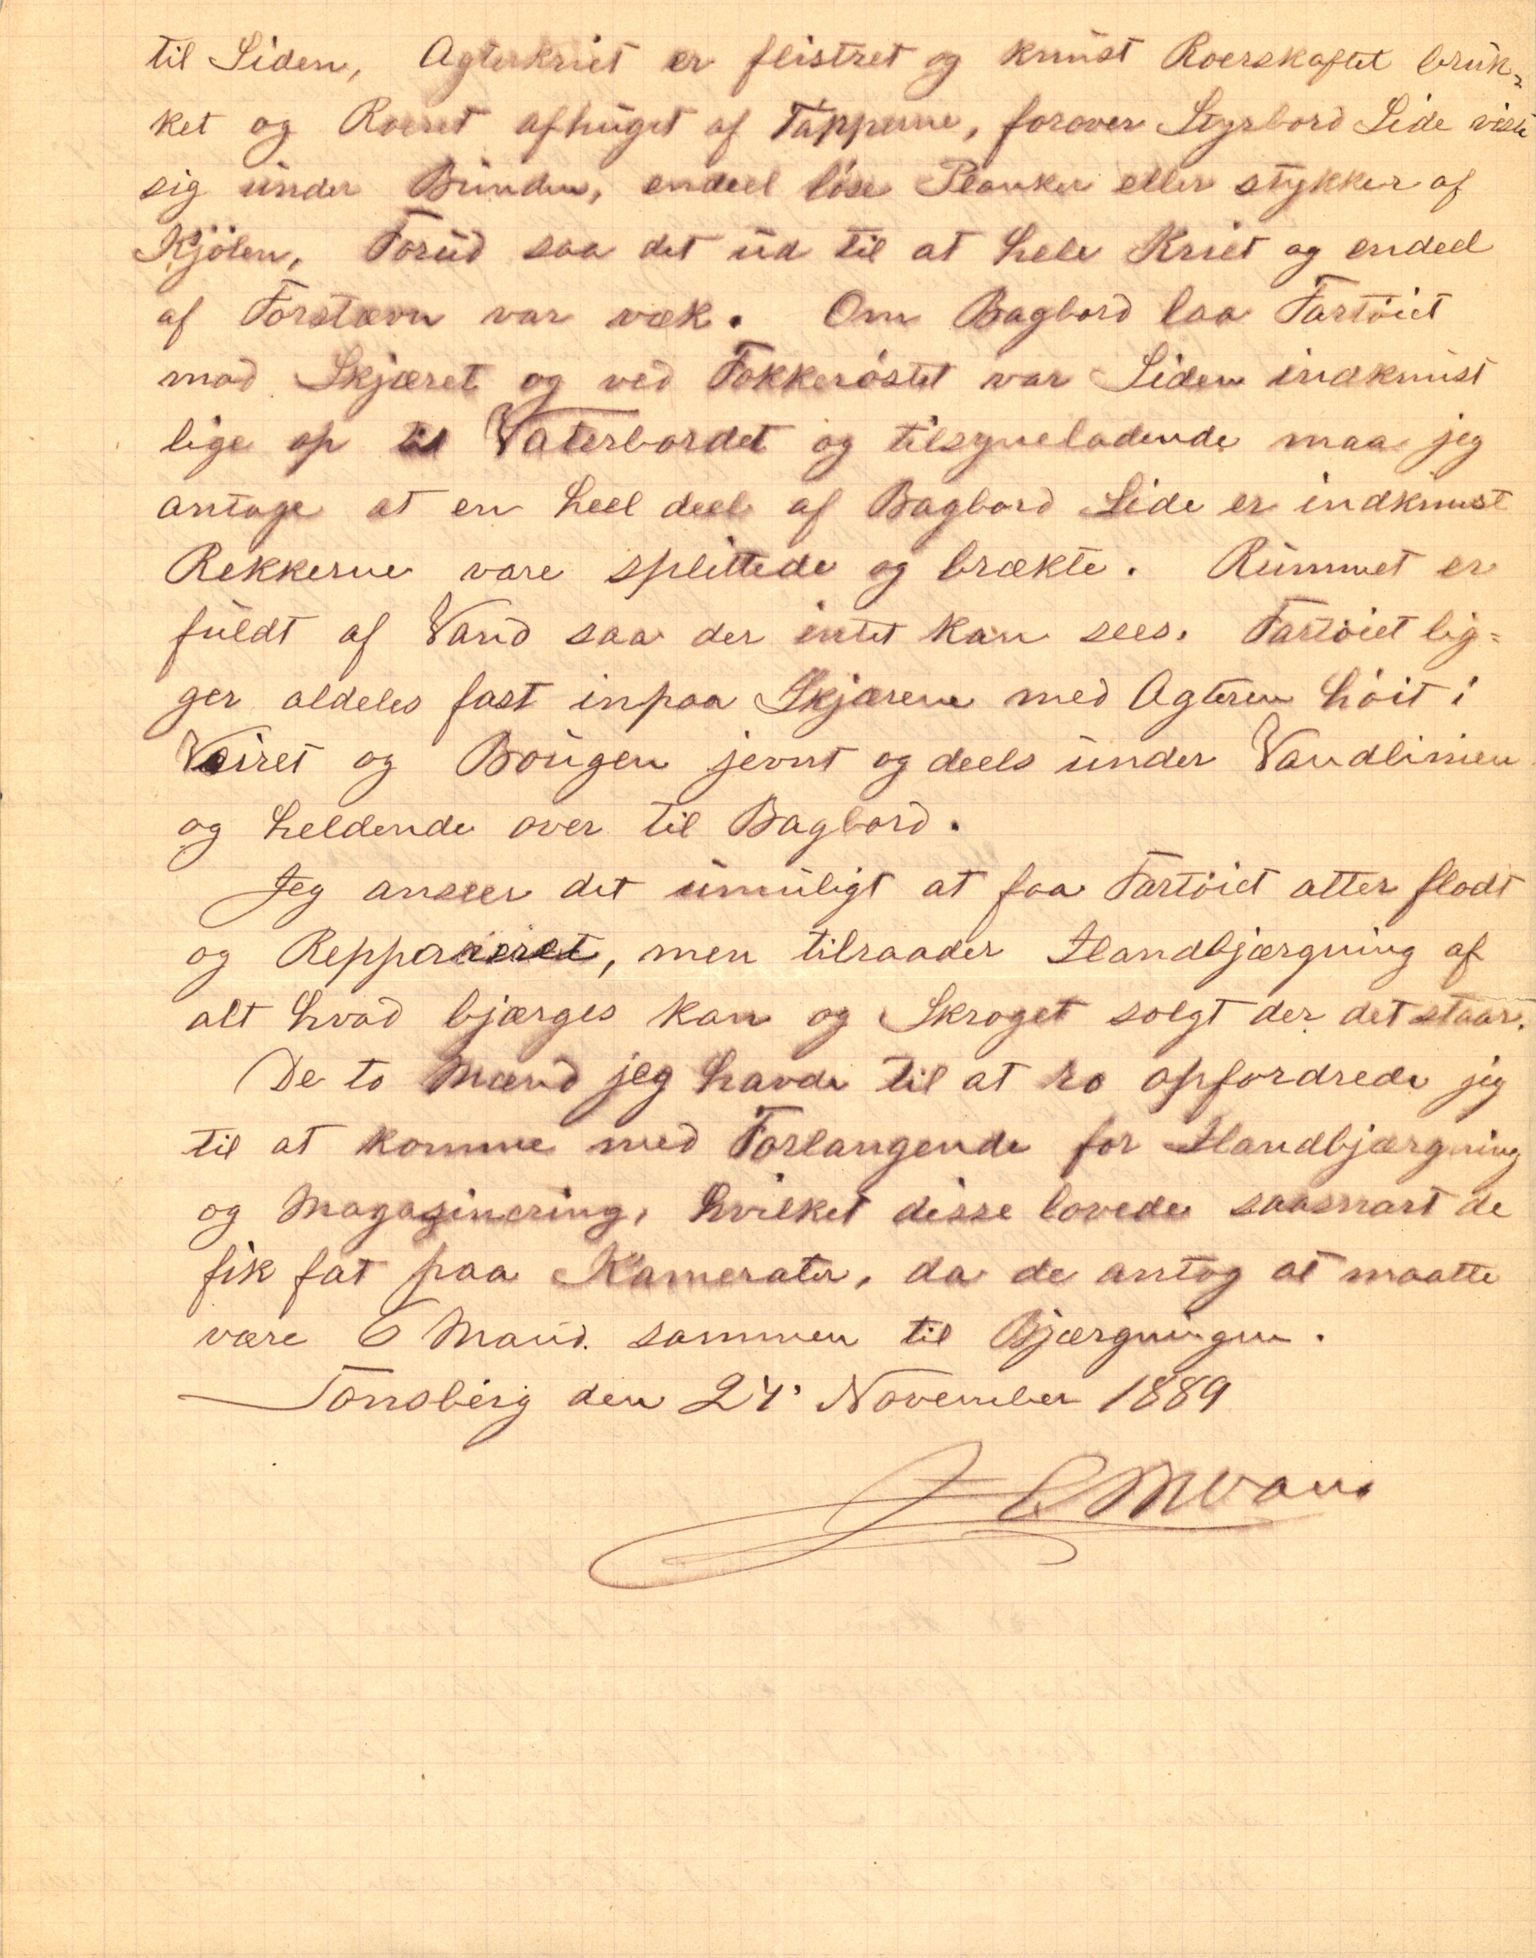 til Siden, Agterkniet er flistret og knust Roerskaftet bruk-
ket og Roeret afhuget af Tapperne, forover Styrbord Side viste
sig under Bunden, endeel löse Planker eller stykker af
Kjölen, Forud saa det ud til at hele Kniet og endeel
af Forstævn var væk. Om Bagbord laa Fartöiet
mod Skjæret og ved Fokkeröstet var Siden indknust
lige op til Vaterbordet og tilsyneladende maa jeg
antage at en heel deel af Bagbord Side er indknust
Rekkerne vare splittede og brækte. Rummet er
fuldt af Vand saa der intet kan sees. Fartöiet lig-
ger aldeles fast inpaa Skjærene med Agteren höit i
Veiret og Bougen jevnt og deels under Vandlinien
og heldende over til Bagbord.
Jeg anseer det umuligt at faa Fartöiet atter flodt
og Reppareret, men tilraader Handbjærgning af
alt hvad bjærges kan og Skroget solgt der det staar.
De to Mænd jeg havde til at ro opfordrede jeg
til at komme med Forlangende for Handbjærgning
og Magasinering, hvilket disse lovede saasnart de
fik fat paa Kamerater, da de antog at maatte
være 6 Mand sammen til Bjærgningen.
Tonsberg den 24' November 1889